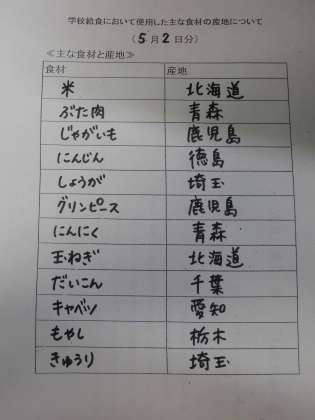 学校給食において使用した主な食材の産地について
（5月2日分）
≪主な食材と産地≫
食材 産地
米 北海道
ぶた肉 青森
じゃがいも 鹿児島
にんじん 徳島
しょうが 埼玉
グリンピース 鹿児島
にんにく 青森
玉ねぎ 北海道
だいこん 千葉
キャベツ 愛知
もやし 栃木
きゅうり 埼玉